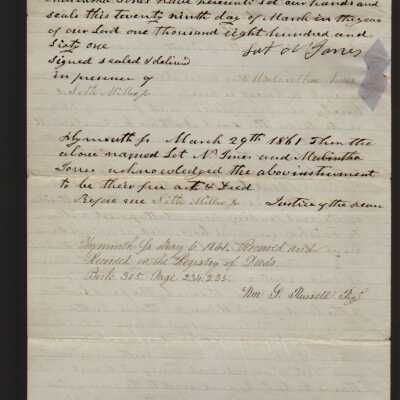 Jones have hereunto set our hands and
seals this twenty ninth day of March in the year
of our Lord one thousand eight hundred and
sixty one Lot N Jones
Signed sealed & delivd
in presence of Jones
Seth Miller jr
Plymouth ss March 29th 1861 Then the
above named Lot N Jones and
Jones acknowledged the above instrument
to be their free act & Deed
Before me Seth Miller jr Justice of the
Plymouth ss May 6 1861. Received and
Recorded in the Registry of Deeds.
Book 305 Page 234,235.
Wm S. Russell Regr